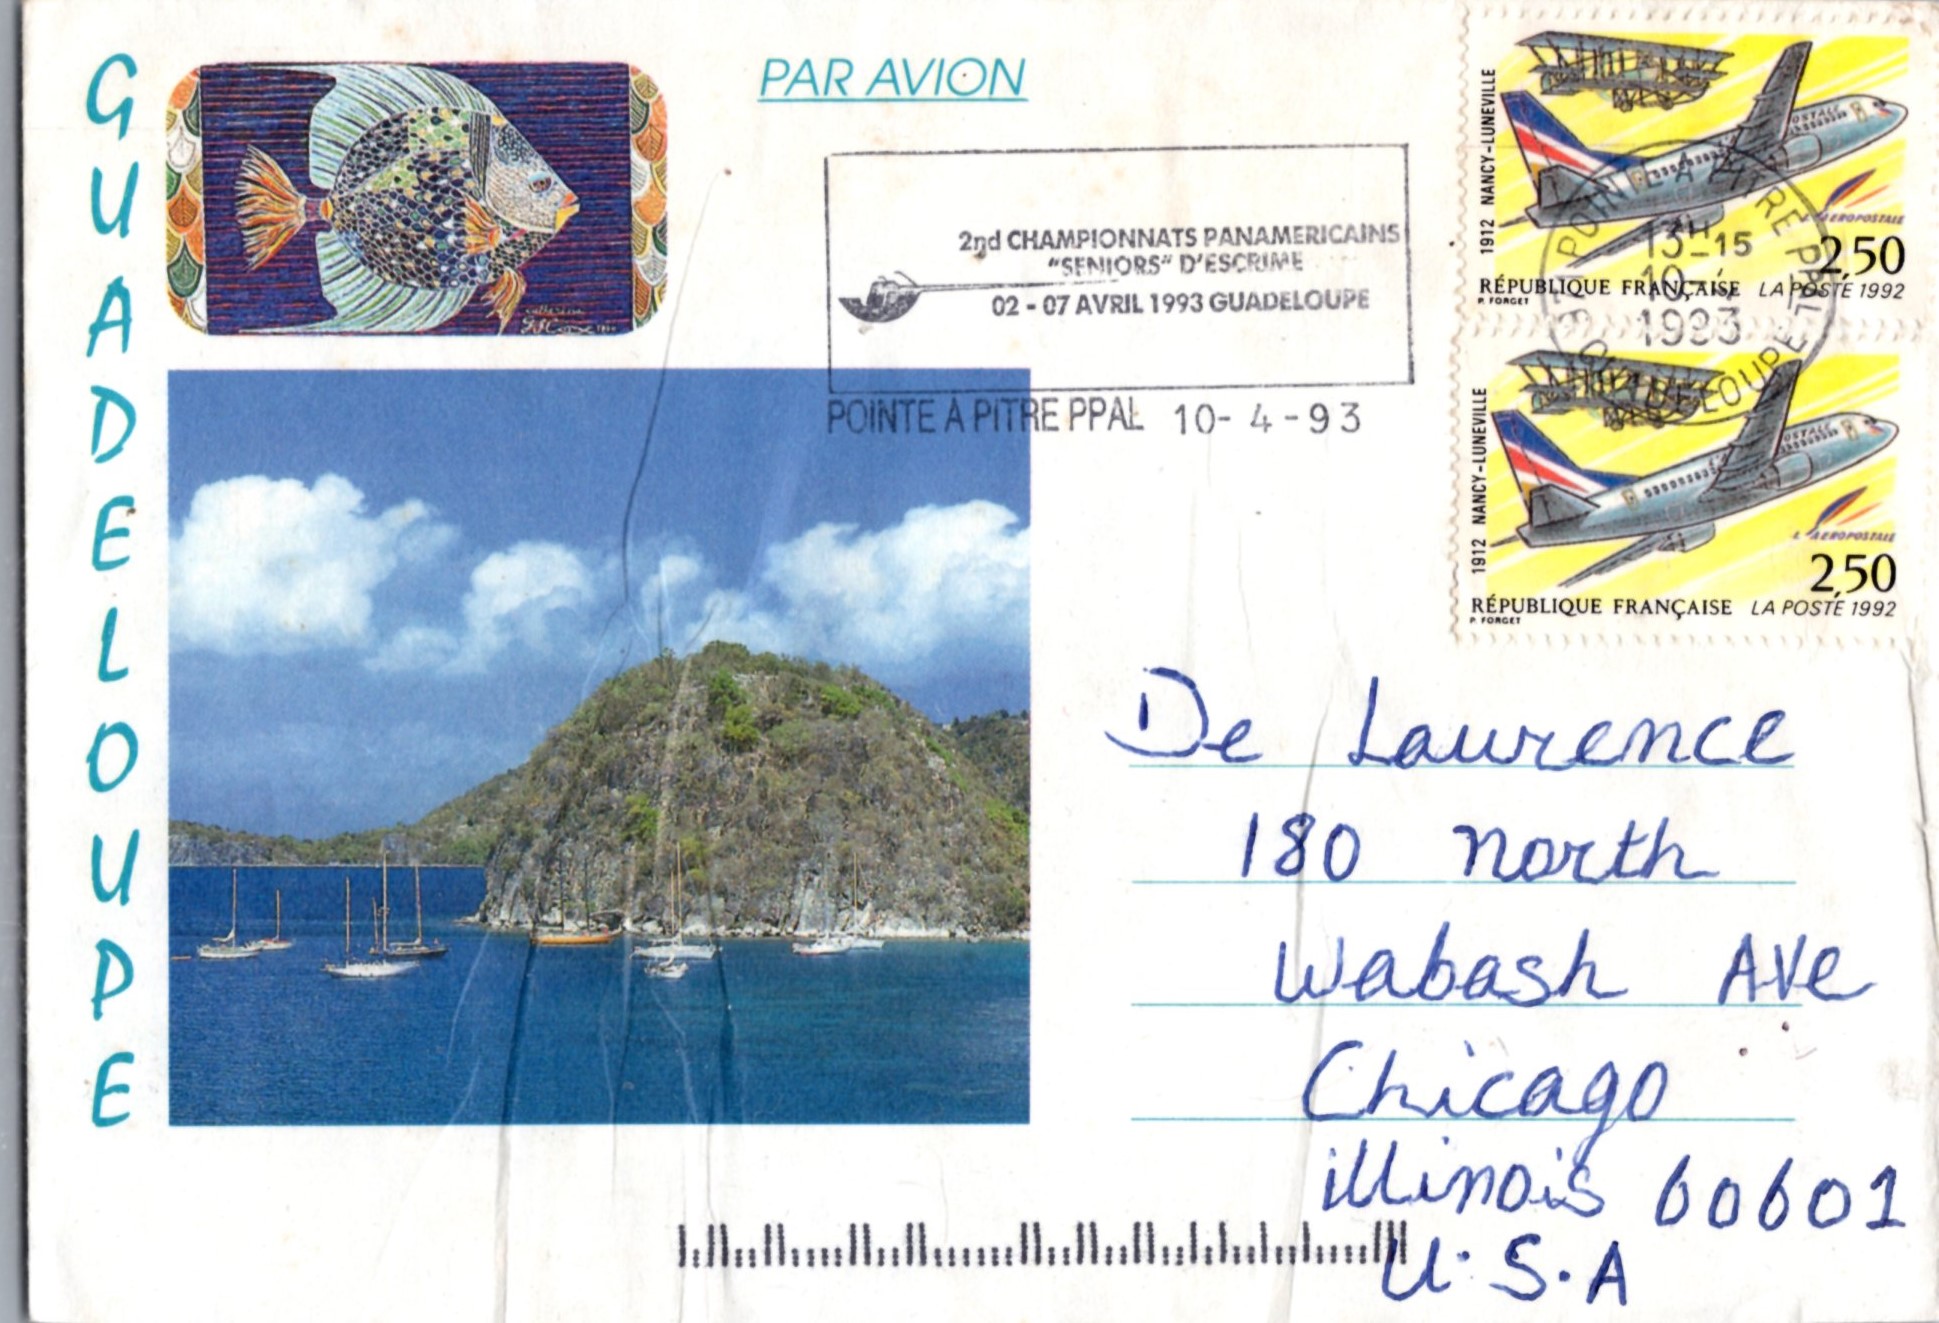 GUADELOUPE
PAR AVION
2nd CHAMPIONNATS PANAMERICAINS
"SENIORS" D'ESCRIME
02 - 07 AVRIL 1993 GUADELOUPE
POINTE A PITRE PPAL 10- 4 -93
1912 NANCY-LUNEVILLE
L'AEROPOSTALE
2,50
RÉPUBLIQUE FRANÇAISE LA POSTE 1992
P. FORGET
POINTE A PITRE PPAL
13H15
1993
GUADELOUPE
1912 NANCY-LUNEVILLE
L'AEROPOSTALE
2,50
RÉPUBLIQUE FRANÇAISE LA POSTE 1992
P. FORGET
De Laurence
180 North
Wabash Ave
Chicago
illinois 60601
U.S.A